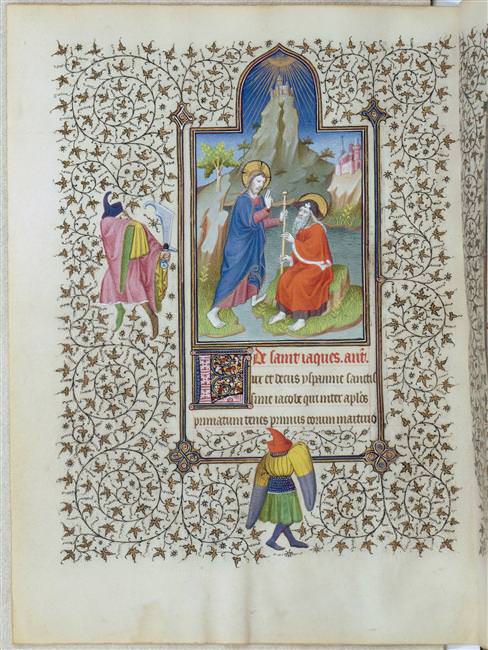 De saint iaques. ant.
Lux et decus yspanie sanctis
sime iacobe qui inter aplos
primatum tenes primus eorum martirio